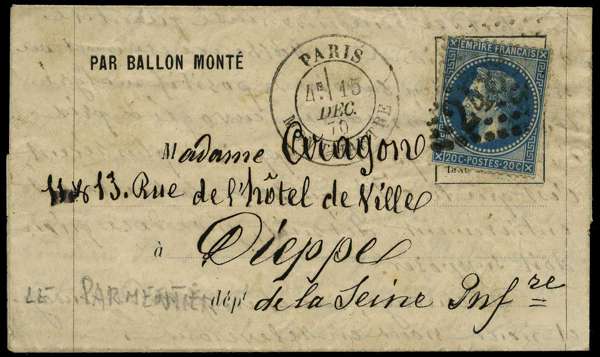 PARIS
PAR BALLON MONTÉ
15
DEC.
70
MONTMARTRE
EMPIRE FRANÇAIS
20C-POSTES-20C
Madame Aragon
11 & 13. Rue de l'hôtel de Ville
à Dieppe
LE PARMENTIER
dépt de la Seine Infre